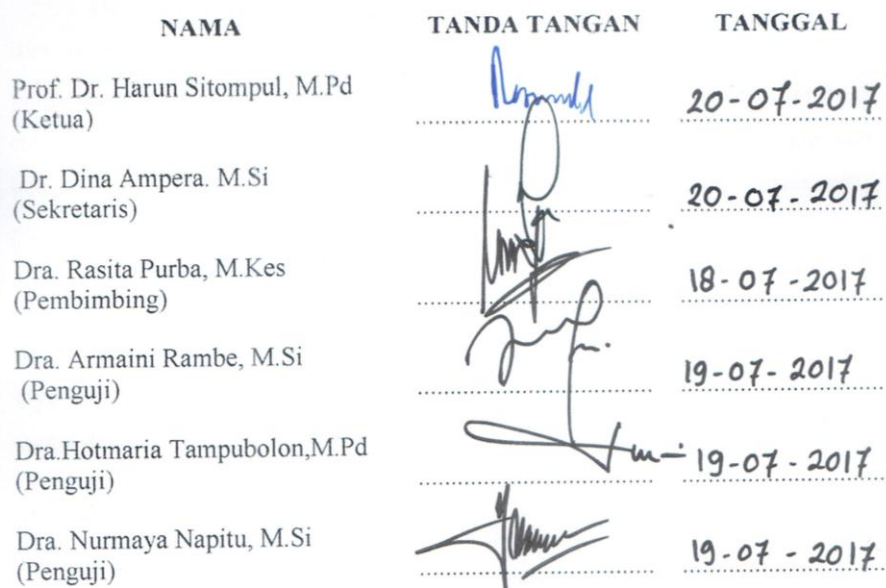 NAMA TANDA TANGAN TANGGAL
Prof. Dr. Harun Sitompul, M.Pd
(Ketua) 20-07-2017
Dr. Dina Ampera. M.Si
(Sekretaris) 20-07-2017
Dra. Rasita Purba, M.Kes
(Pembimbing) 18-07-2017
Dra. Armaini Rambe, M.Si
(Penguji) 19-07-2017
Dra.Hotmaria Tampubolon,M.Pd
(Penguji) 19-07-2017
Dra. Nurmaya Napitu, M.Si
(Penguji) 19-07-2017